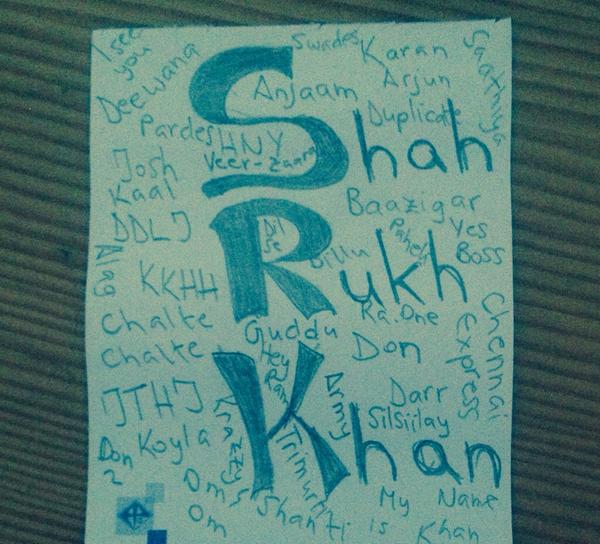 I see you
Deewana
Swades
Karan
Arjun
Saathiya
Anjaam
Duplicate
Pardes
HNY
Veer-Zaara
Shah
Josh
Kaal
Baazigar
DDLJ
Dil
Se
Billu
Paheli
Yes
Boss
Rukh
KKHH
Ra.One
Chalte
Chalte
Guddu
Don
Chennai
Express
Hey
Ram
Army
Darr
Silsiilay
JTHJ
Krazzy4
Trimurti
Khan
Don
2
Koyla
Om
Shanti
Om
My Name
is Khan